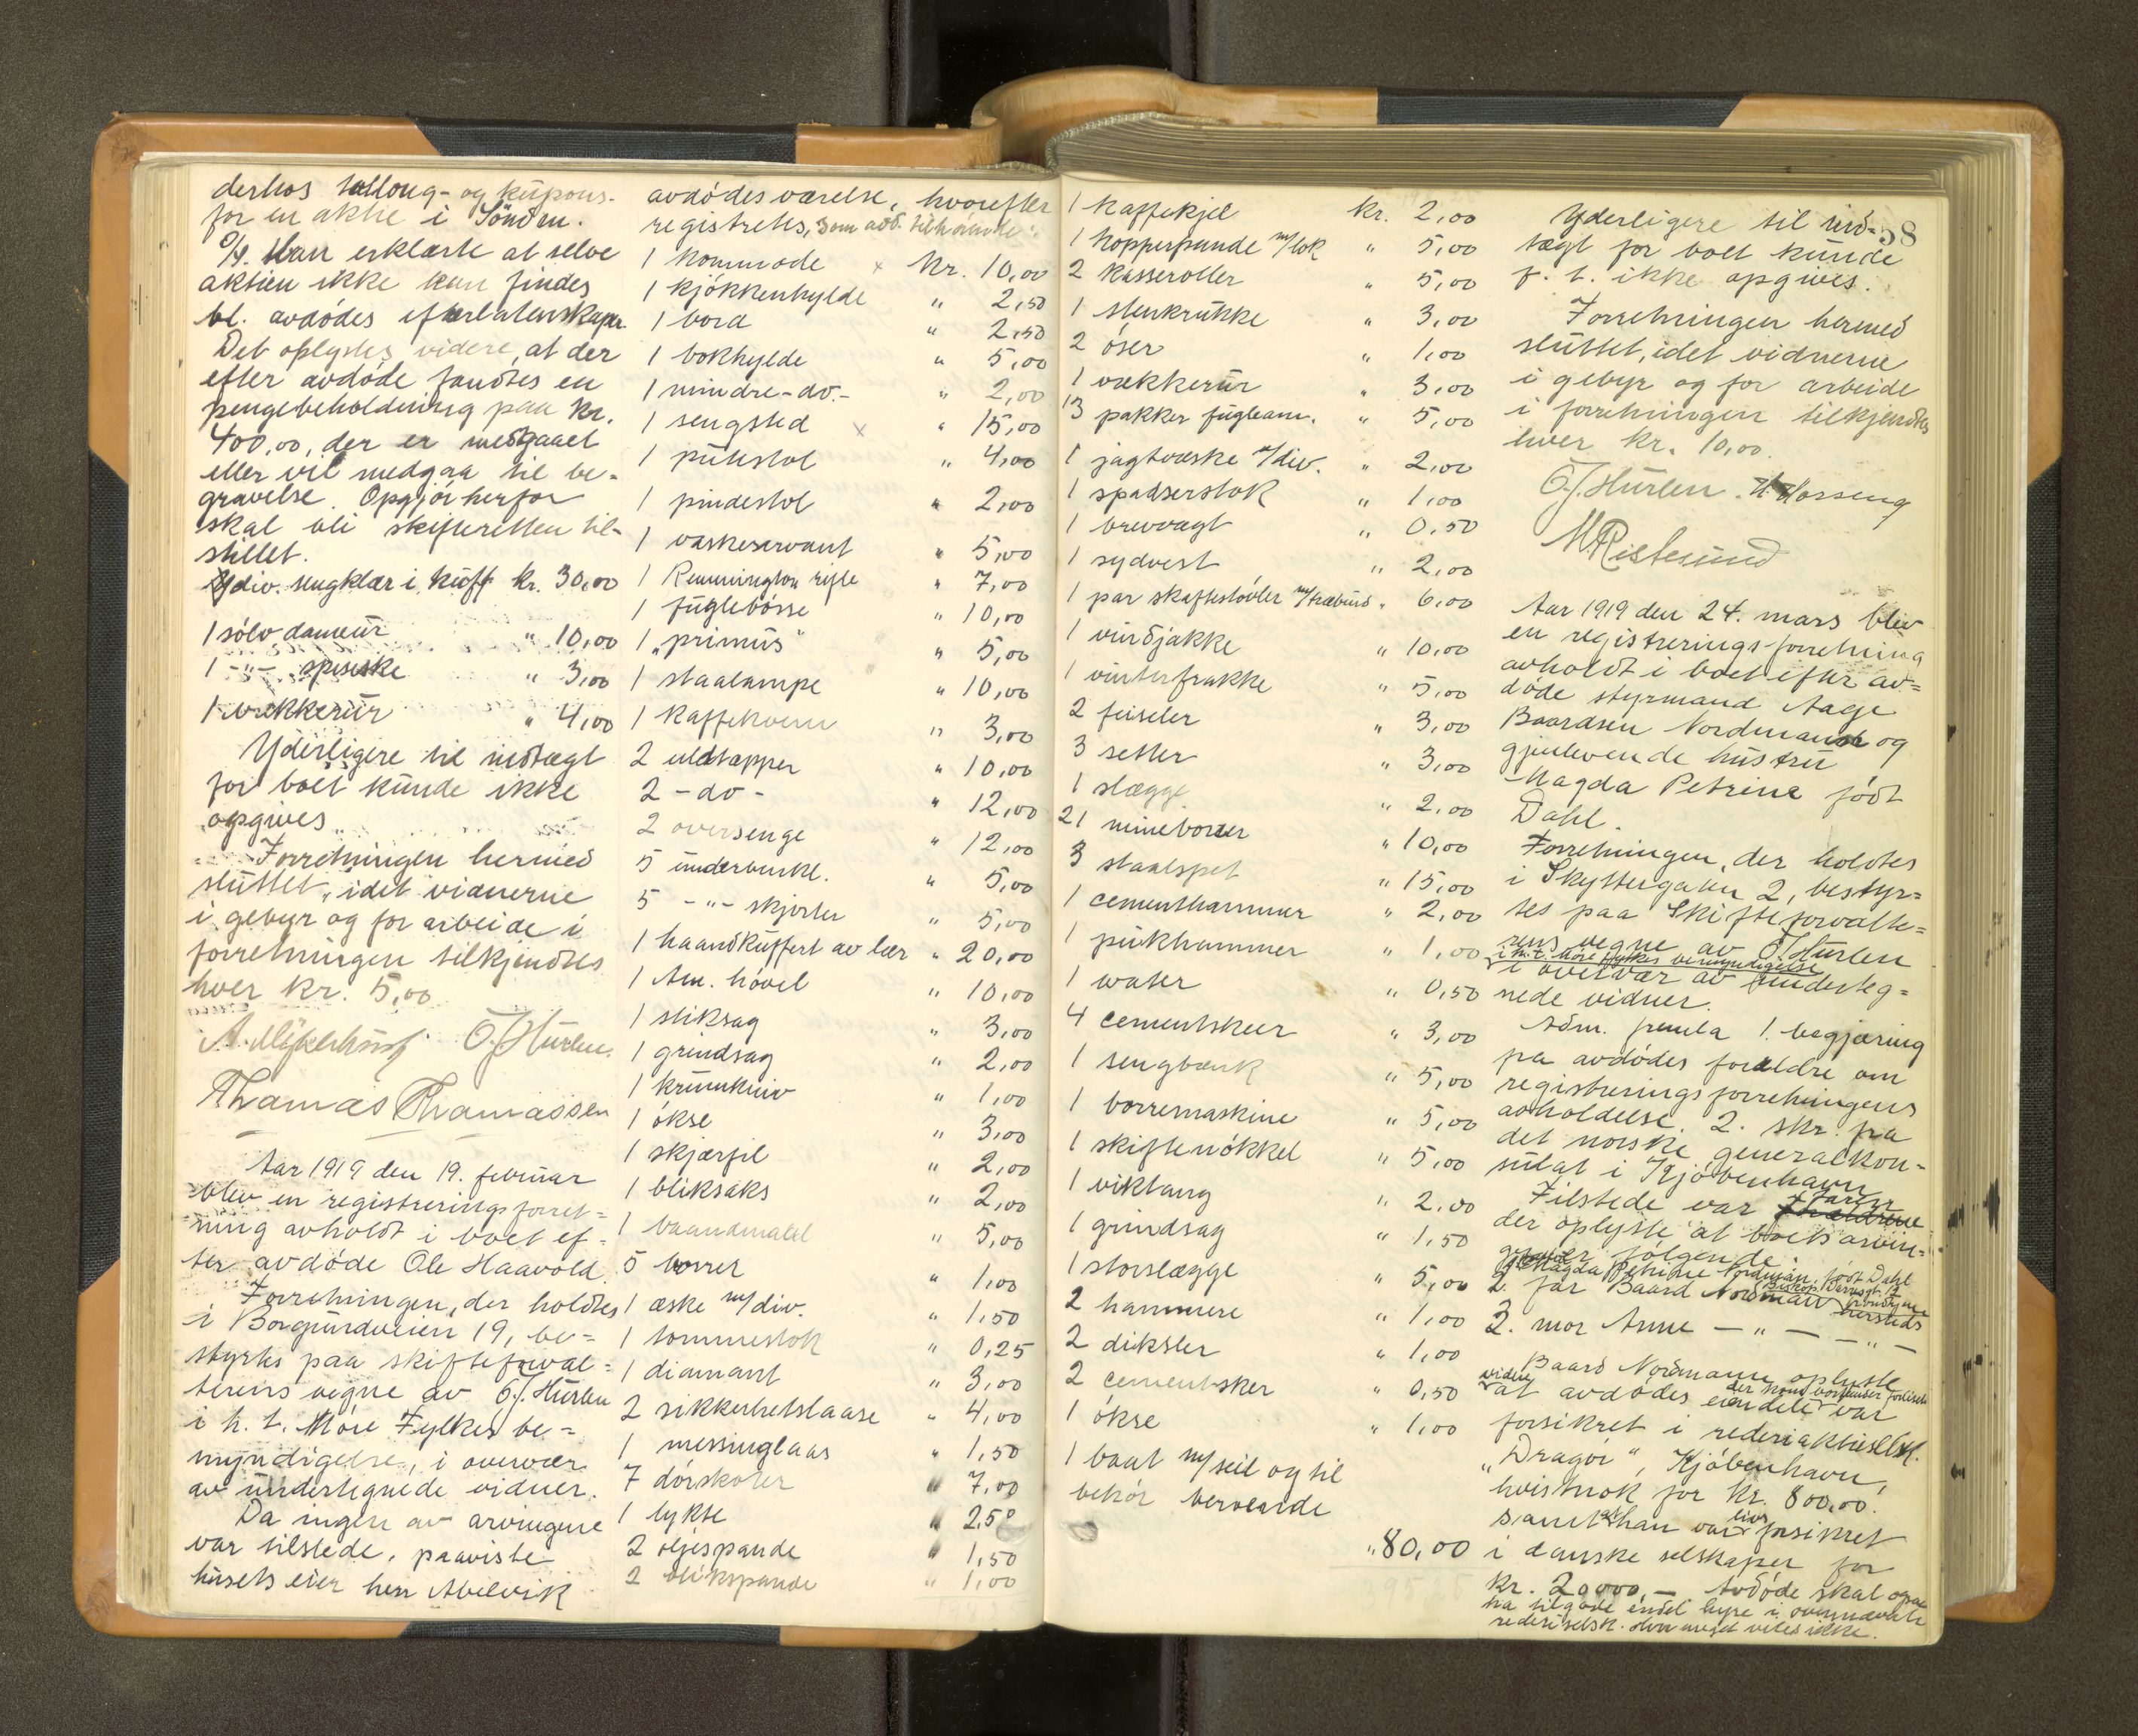 derhos talong- og kupons-
for en aktie i Söndm.
O/g. Han erklærte at selve
aktien ikke kan findes
bl. avdödes efterlatenskaper.
Det oplystes videre, at der
efter avdöde fandtes en
pengebeholdning paa kr.
400,00, der er medgaaet
eller vil medgaa til be-
gravelse. Opgjör herfor
skal bli skifteretten til-
stillet.
div. sengklær i kuff. kr. 30,00
1 sölv dameur " 10,00
1 -"- spiseske " 3,00
1 vækkerur " 4,00
Yderligere til indtægt
for boet kunde ikke
opgives
Forretningen hermed
sluttet, idet vidnerne
i gebyr og for arbeide i
forretningen tilkjendtes
hver kr. 5,00
O.J. Hurlen
Thomas Thomassen
Aar 1919 den 19. februar
blev en registreringsforret=
ning avholdt i boet ef=
ter avdöde Ole Haavold.
Forretningen, der holdtes
i Borgundveien 19, be=
styrtes paa skifteforval=
terens vegne av O.J. Hurlen
i h. t. Möre Fylkes be=
myndigelse, i overvær
av undertegnede vidner.
Da ingen av arvingene
var tilstede, paaviste
husets eier herr Abelvik
avdödes værelse, hvorefter
registrertes, som avd. tilhörende:
1 kommode x kr. 10,00
1 kjökkenhylde " 2,50
1 bord " 2,50
1 bokhylde " 5,00
1 mindre -do.- " 2,00
1 sengsted x " 15,00
1 putestol " 4,00
1 pindestol " 2,00
1 vaskeservant " 5,00
1 Remmington rifle " 7,00
1 fuglebösse " 10,00
1 "primus" " 5,00
1 staalampe " 10,00
1 kaffekvern " 3,00
2 uldtæpper " 10,00
2 -do- " 12,00
2 oversenge " 12,00
5 underbenkl. " 5,00
5 -"- skjorter " 5,00
1 haandkuffert av lær " 20,00
1 Am. hövel " 10,00
1 stiksag " 3,00
1 grindsag " 2,00
1 krumkniv " 1,00
1 ökse " 3,00
1 skjærfil " 2,00
1 bliksaks " 2,00
1 baandmaal " 5,00
5 borrer " 1,00
1 æske m/div. " 1,50
1 tommestok " 0,25
1 diamant " 3,00
2 sikkerhetslaase " 4,00
1 messinglaas " 1,50
7 dörskolter " 7,00
1 lykte " 2,50
2 oljespande " 1,50
2 blikspande " 1,00
1 kaffekjel kr. 2,00
1 kopperpande m/lok " 5,00
2 kasseroller " 5,00
1 stenkrukke " 3,00
2 öser " 1,00
1 vækkerur " 3,00
13 pakker fugleam. " 5,00
1 jagtvæske m/div. " 2,00
1 spadserstok " 1,00
1 brevvægt " 0,50
1 sydvest " 2,00
1 par skaftestövler m/træbund " 6,00
1 vindjakke " 10,00
1 vinterfrakke " 5,00
2 feiseler " 3,00
3 setter " 3,00
1 slægge " 2,00
21 mineborer " 10,00
3 staalspet " 15,00
1 cementhammer " 2,00
1 pukhammer " 1,00
1 water " 0,50
4 cementskeer " 3,00
1 sengbænk " 5,00
1 borremaskine " 5,00
1 skiftenökkel " 5,00
1 viktang " 2,00
1 grindsag " 1,50
1 storslægge " 5,00
2 hammere " 1,00
2 diksler " 1,00
2 cementsker " 0,50
1 ökse " 1,00
1 baat m/seil og til
behör beroende
" 80,00
58
Yderligere til ind-
tægt for boet kunde
f. t. ikke opgives.
Forretningen hermed
sluttet, idet vidnerne
i gebyr og for arbeide
i forretningen tilkjendtes
hver kr. 10,00.
O.J. Hurlen. H. Hosseng
M Ristesund
Aar 1919 den 24. mars blev
en registrerings-forretning
avholdt i boet efter av=
döde styrmand Aage
Baardsen Nordmann og
gjenlevende hustru
Magda Petrine födt
Dahl.
Forretningen, der holdtes
i Skyttergaten 2, bestyr=
tes paa Skifteforvalte=
rens vegne av O.J. Hurlen
i h. t. Möre Fylkes bemyndigelse
i overvær av underteg=
nede vidner.
Adm. fremla 1. begjæring
fra avdödes forældre om
registreringsforretningens
avholdelse. 2. skr. fra
det norske generalkon-
sulat i Kjöbenhavn
Tilstede var faren
der oplyste at boets arvin=
ger er fölgende:
1. Magda Petrine Nordman, födt Dahl
2. far Baard Nordman hersteds
3. mor Anne -"- -"-
Baard Nordmann oplyste
videre at avdödes eiendele var
forsikret i rederiaktieselsk.
"Dragör", Kjöbenhavn,
hvistnok for kr. 800,00.
samt at han var livsforsikret
i danske selskaper for
kr. 20000,- Avdöde skal ogsaa
ha tilgode endel hyre i ovennævnte
rederiselsk. Hvor meget vites ikke.